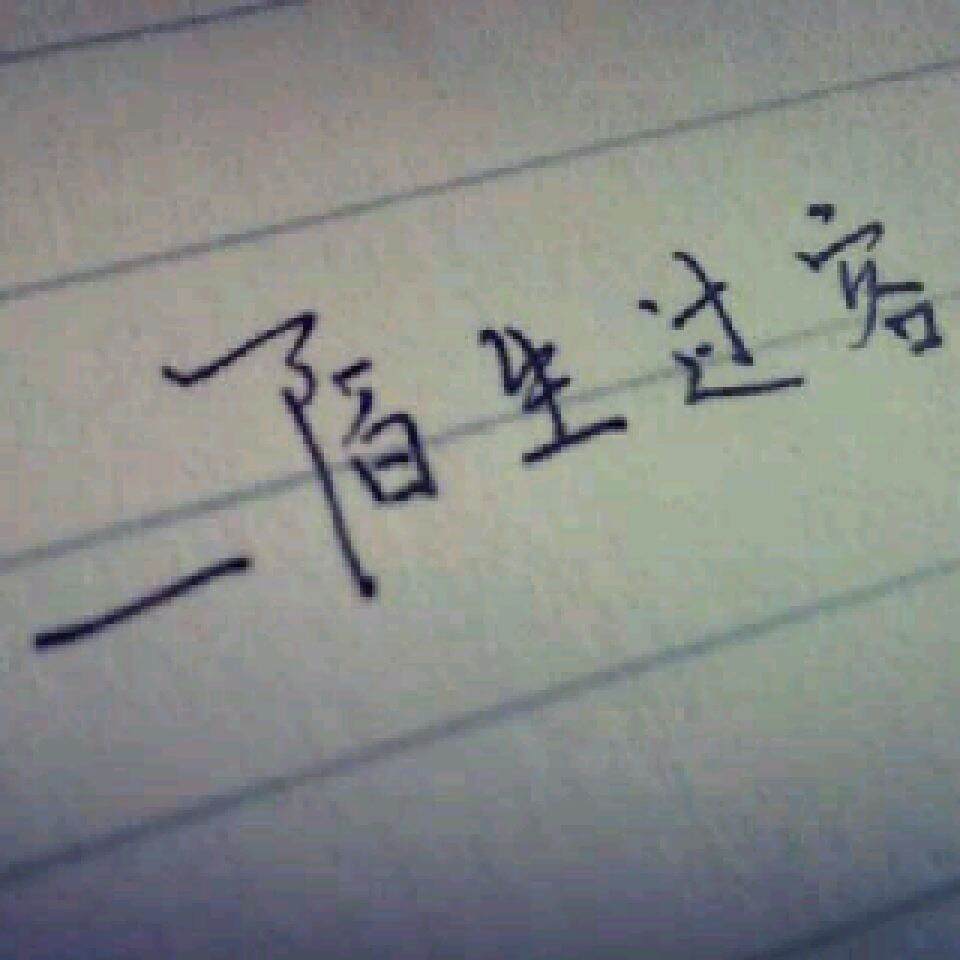 一陌生过客